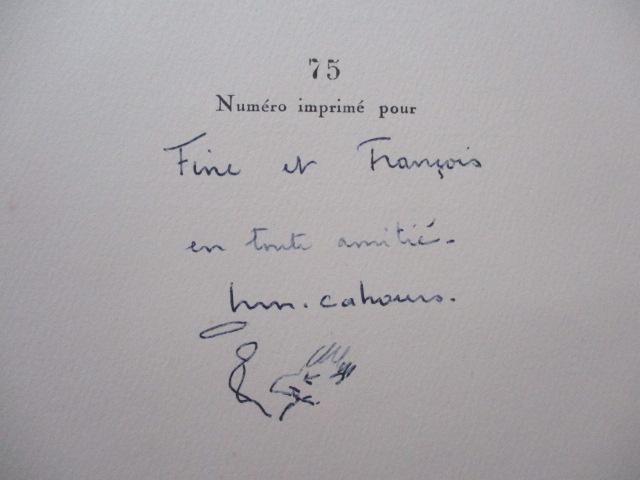 75
Numéro imprimé pour
Fine et François
en toute amitié.
hm. cahours.